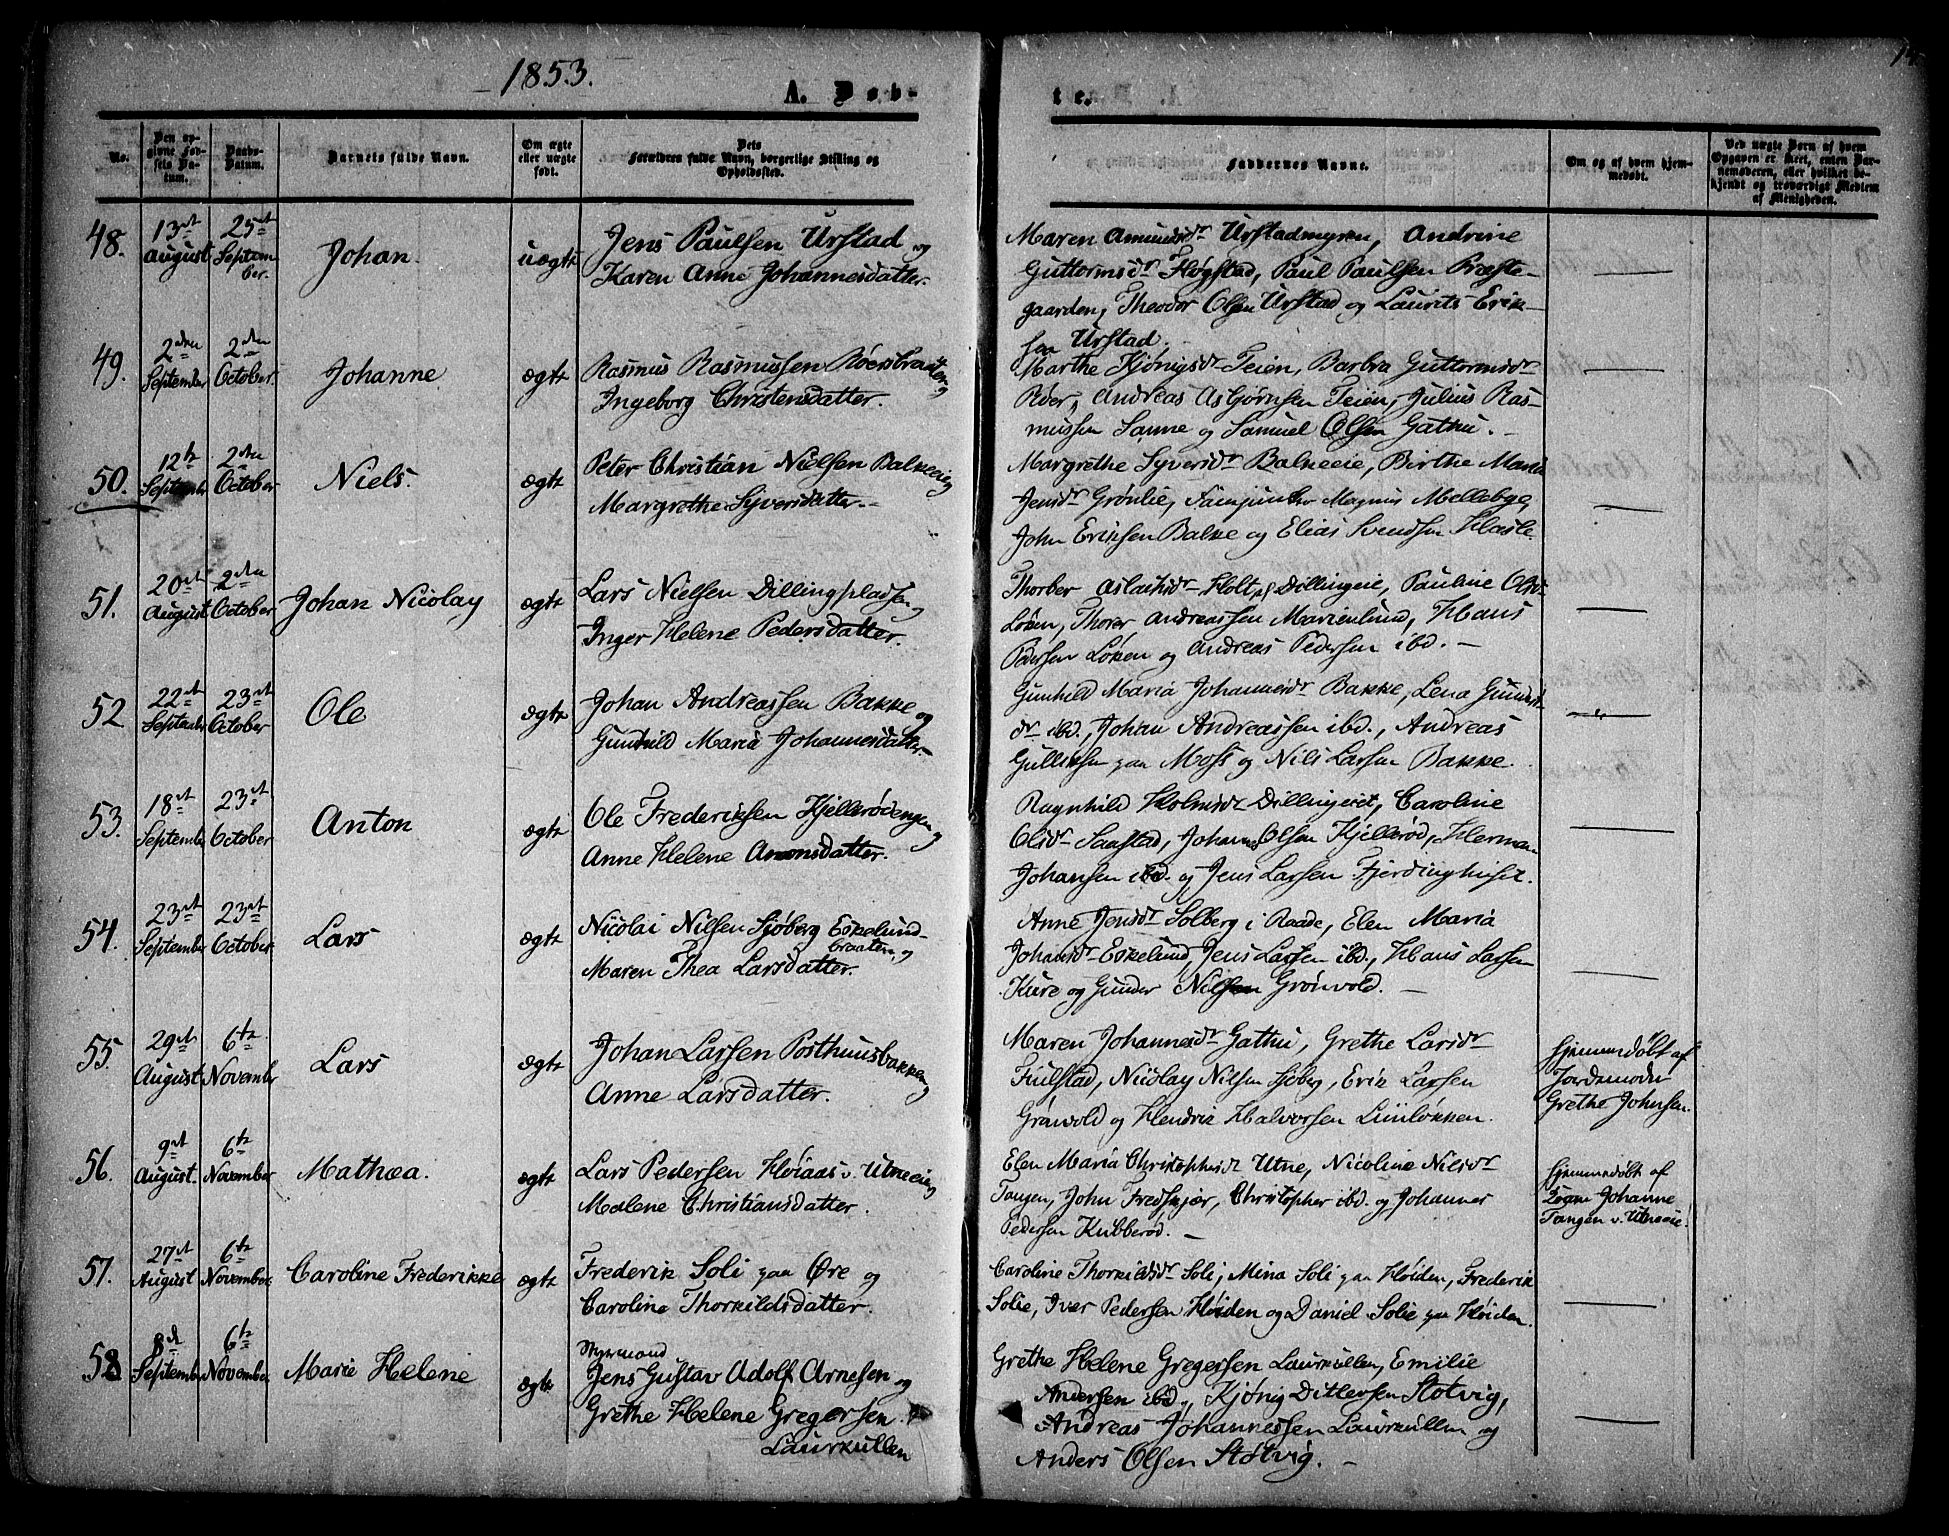 1853.
A. Døb-
te.
No.
Den op-
givne Fød-
sels Da-
tum.
Daabs-
Datum.
Barnets fulde Navn.
Om ægte
eller uægte
født.
Dets
Forældres fulde Navn, borgerlige Stilling og
Opholdssted.
Faddernes Navne.
Om og af hvem hjem-
medøbt.
Ved uægte Børn af hvem
Opgaven er skeet, enten Bar-
nemoderen, eller hvilket be-
kjendt og troværdigt Medlem
af Menigheden.
48. 13de August 25de Septem-
ber. Johan. uægte
Jens Paulsen Urstad og
Karen Anne Johannesdatter.
Maren Amundsdr Urstadmyren, Andrine
Guttormsdr Fløgstad, Paul Paulsen Præste-
gaarden, Theodor Olsen Urstad og Laurits Erik-
sen Urstad.
49. 2den September 2den October. Johanne ægte
Rasmus Rasmussen Roersbraaten og
Ingeborg Christensdatter.
Marthe Kjønigsdr Teien, Barbra Guttormsdr
Roer, Andreas Asbjørnsen Teien, Julius Ras-
mussen Sanne og Samuel Olsen Gathu.
50. 12te September 2den October Niels. ægte
Peter Christian Nielsen Balkeeie og
Margrethe Syversdatter.
Margrethe Syversdr Balkeeie, Birthe Maria
Jensdr Grønlie, Magnus Mellebye,
John Eriksen Balke og Elias Svendsen Hasle.
51. 20de August 2den October Johan Nicolay ægte
Lars Nielsen Dillingpladsen og
Inger Helene Pedersdatter.
Thorber Aslaksdr Holt, Dillingeie, Pauline Olsdr
Løken, Thorer Andreassen Marienlund, Hans
Pedersen Løken og Andreas Pedersen ibd.
52 22de September 23de October Ole ægte
Johan Andreassen Bakke og
Gunhild Maria Johannesdatter.
Gunhild Maria Johannesdr Bakke, Lena Gunders-
dr ibd., Johan Andreassen ibd., Andreas
Gulliksen paa Moss og Nils Larsen Bakke.
53. 18de September 23de October Anton ægte
Ole Frederiksen Kjellerødengen og
Anne Helene Amonsdatter.
Ragnhild Holmsdr Dillingeiet, Caroline
Olsdr Saastad, Johannes Olsen Kjellerød, Herman
Johansen ibd. og Jens Larsen Fjerdinghuset.
54. 23de September 23de October. Lars ægte
Nicolai Nilsen Sjøberg Eskelund-
braaten, og
Maren Thea Larsdatter.
Anne Jensdr Solberg i Raade, Elen Maria
Johansdr Eskelund, Jens Larsen ibd., Hans Larsen
Kure og Gunder Nilsen Grønvold.
55. 29de August 6te November Lars ægte
Johan Larsen Posthuusbakken og
Anne Larsdatter.
Maren Johannesdr Gathu, Grethe Larsdr
Fuulstad, Nicolay Nilsen Sjøberg, Erik Larsen
Grønvold og Hendrik Halvorsen Liinløkken.
hjemmedøbt af
Jordemoder
Grethe Johnsen.
56. 9de August. 6te November Mathea. ægte
Lars Pedersen Høiaas v. Utneeie og
Malene Christiansdatter.
Elen Maria Christophersdr Utne, Nicoline Nilsdr
Tangen, John Fredskjær, Christopher ibd. og Johannes
Pedersen Kubberød.
hjemmedøbt af
Johanne
Tangen v. Utneeie.
57. 27de August 6te November. Caroline Frederikke ægte
Frederik Soli paa Øre og
Caroline Thorkildsdatter.
Caroline Thorkildsdr Soli, Mina Soli paa Høiden, Frederik
Solie, Iver Pedersen Høiden og Daniel Solie paa Høiden.
58 8de September 6te November Marie Helene ægte
Styrmand
Jens Gustav Adolf Arnesen og
Grethe Helene Gregersen.
Laurkullen
Grethe Helene Gregersen Laurkullen, Emilie
Andersen ibd., Kjønig Ditlefsen Støtvig,
Andreas Johannessen Laurkullen og
Anders Olsen Støtvig.